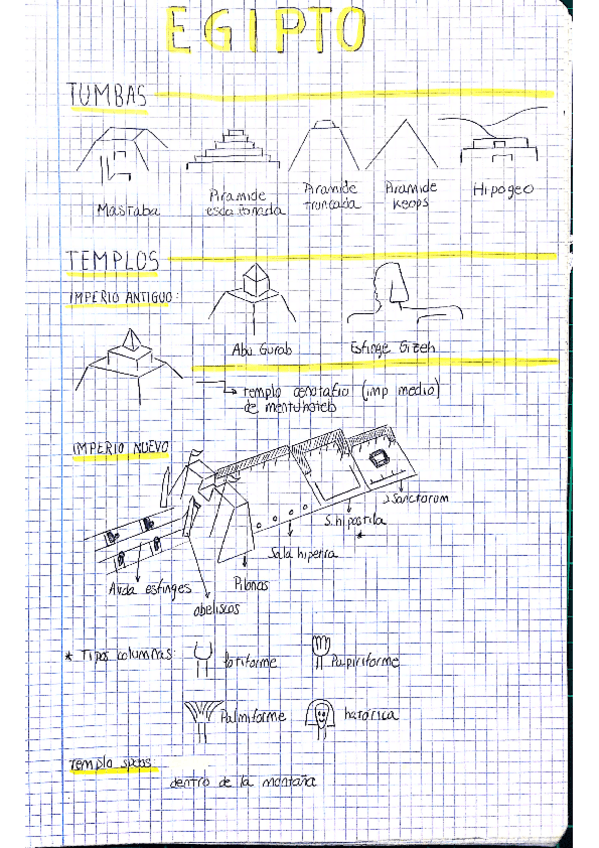 EGIPTO
TUMBAS
Mastaba
Piramide
escalonada
Piramide
truncada
Piramide
keops
Hipogeo
TEMPLOS
IMPERIO ANTIGUO:
Abu Gurab
Esfinge Gizeh
templo cenotafio (imp medio)
de mentuhoteb
IMPERIO NUEVO
Sanctorum
S. hipostila
*
Sala hipetra
Avda esfinges
Pilonos
obeliscos
* Tipos columnas:
lotiforme
Papiriforme
Palmiforme
hatórica
Templo speos:
dentro de la montaña